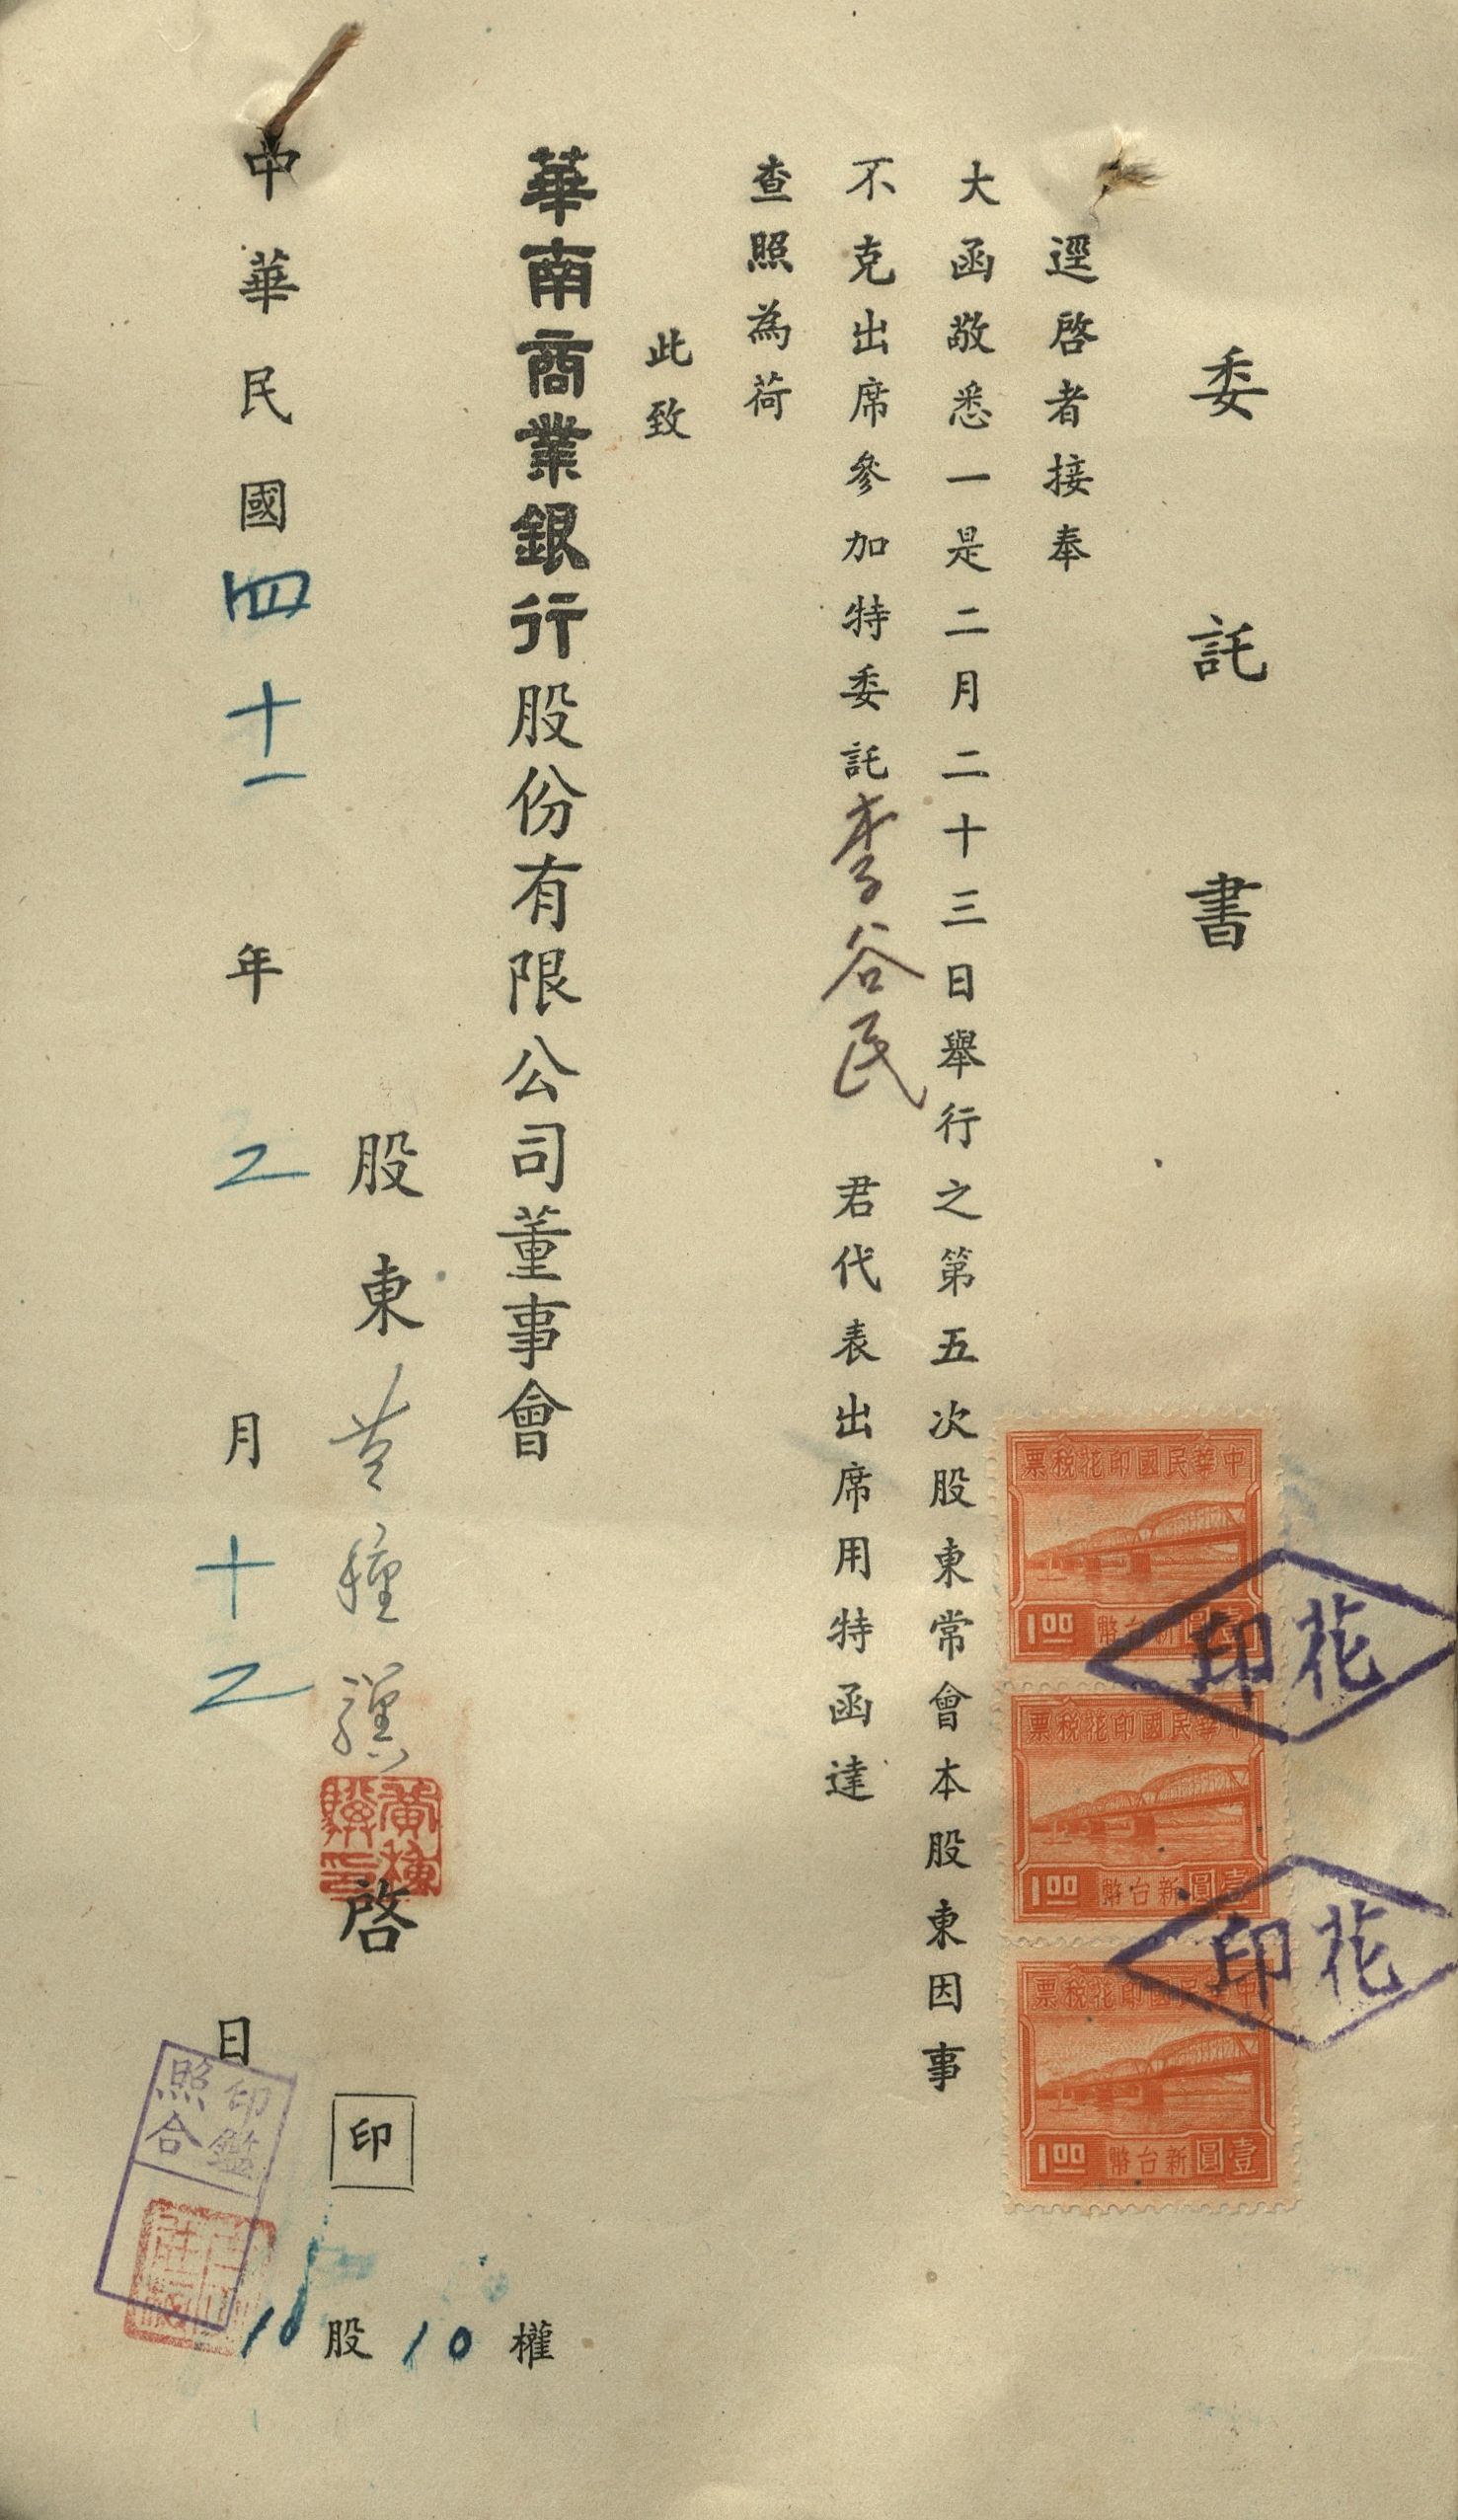 委託書
逕啓者接奉
大函敬悉一是二月二十三日舉行之第五次股東常會本股東因事
不克出席參加特委託李谷民 君代表出席用特函達
查照為荷
此致
華南商業銀行股份有限公司董事會
股東黃種 啓 印
中華民國四十一年二月十二日
10股10權
票稅花印國民華中
1.00 幣台新圓壹
票稅花印國民華中
1.00 幣台新圓壹
票稅花印國民華中
1.00 幣台新圓壹
印花
印花
印鑑
照合